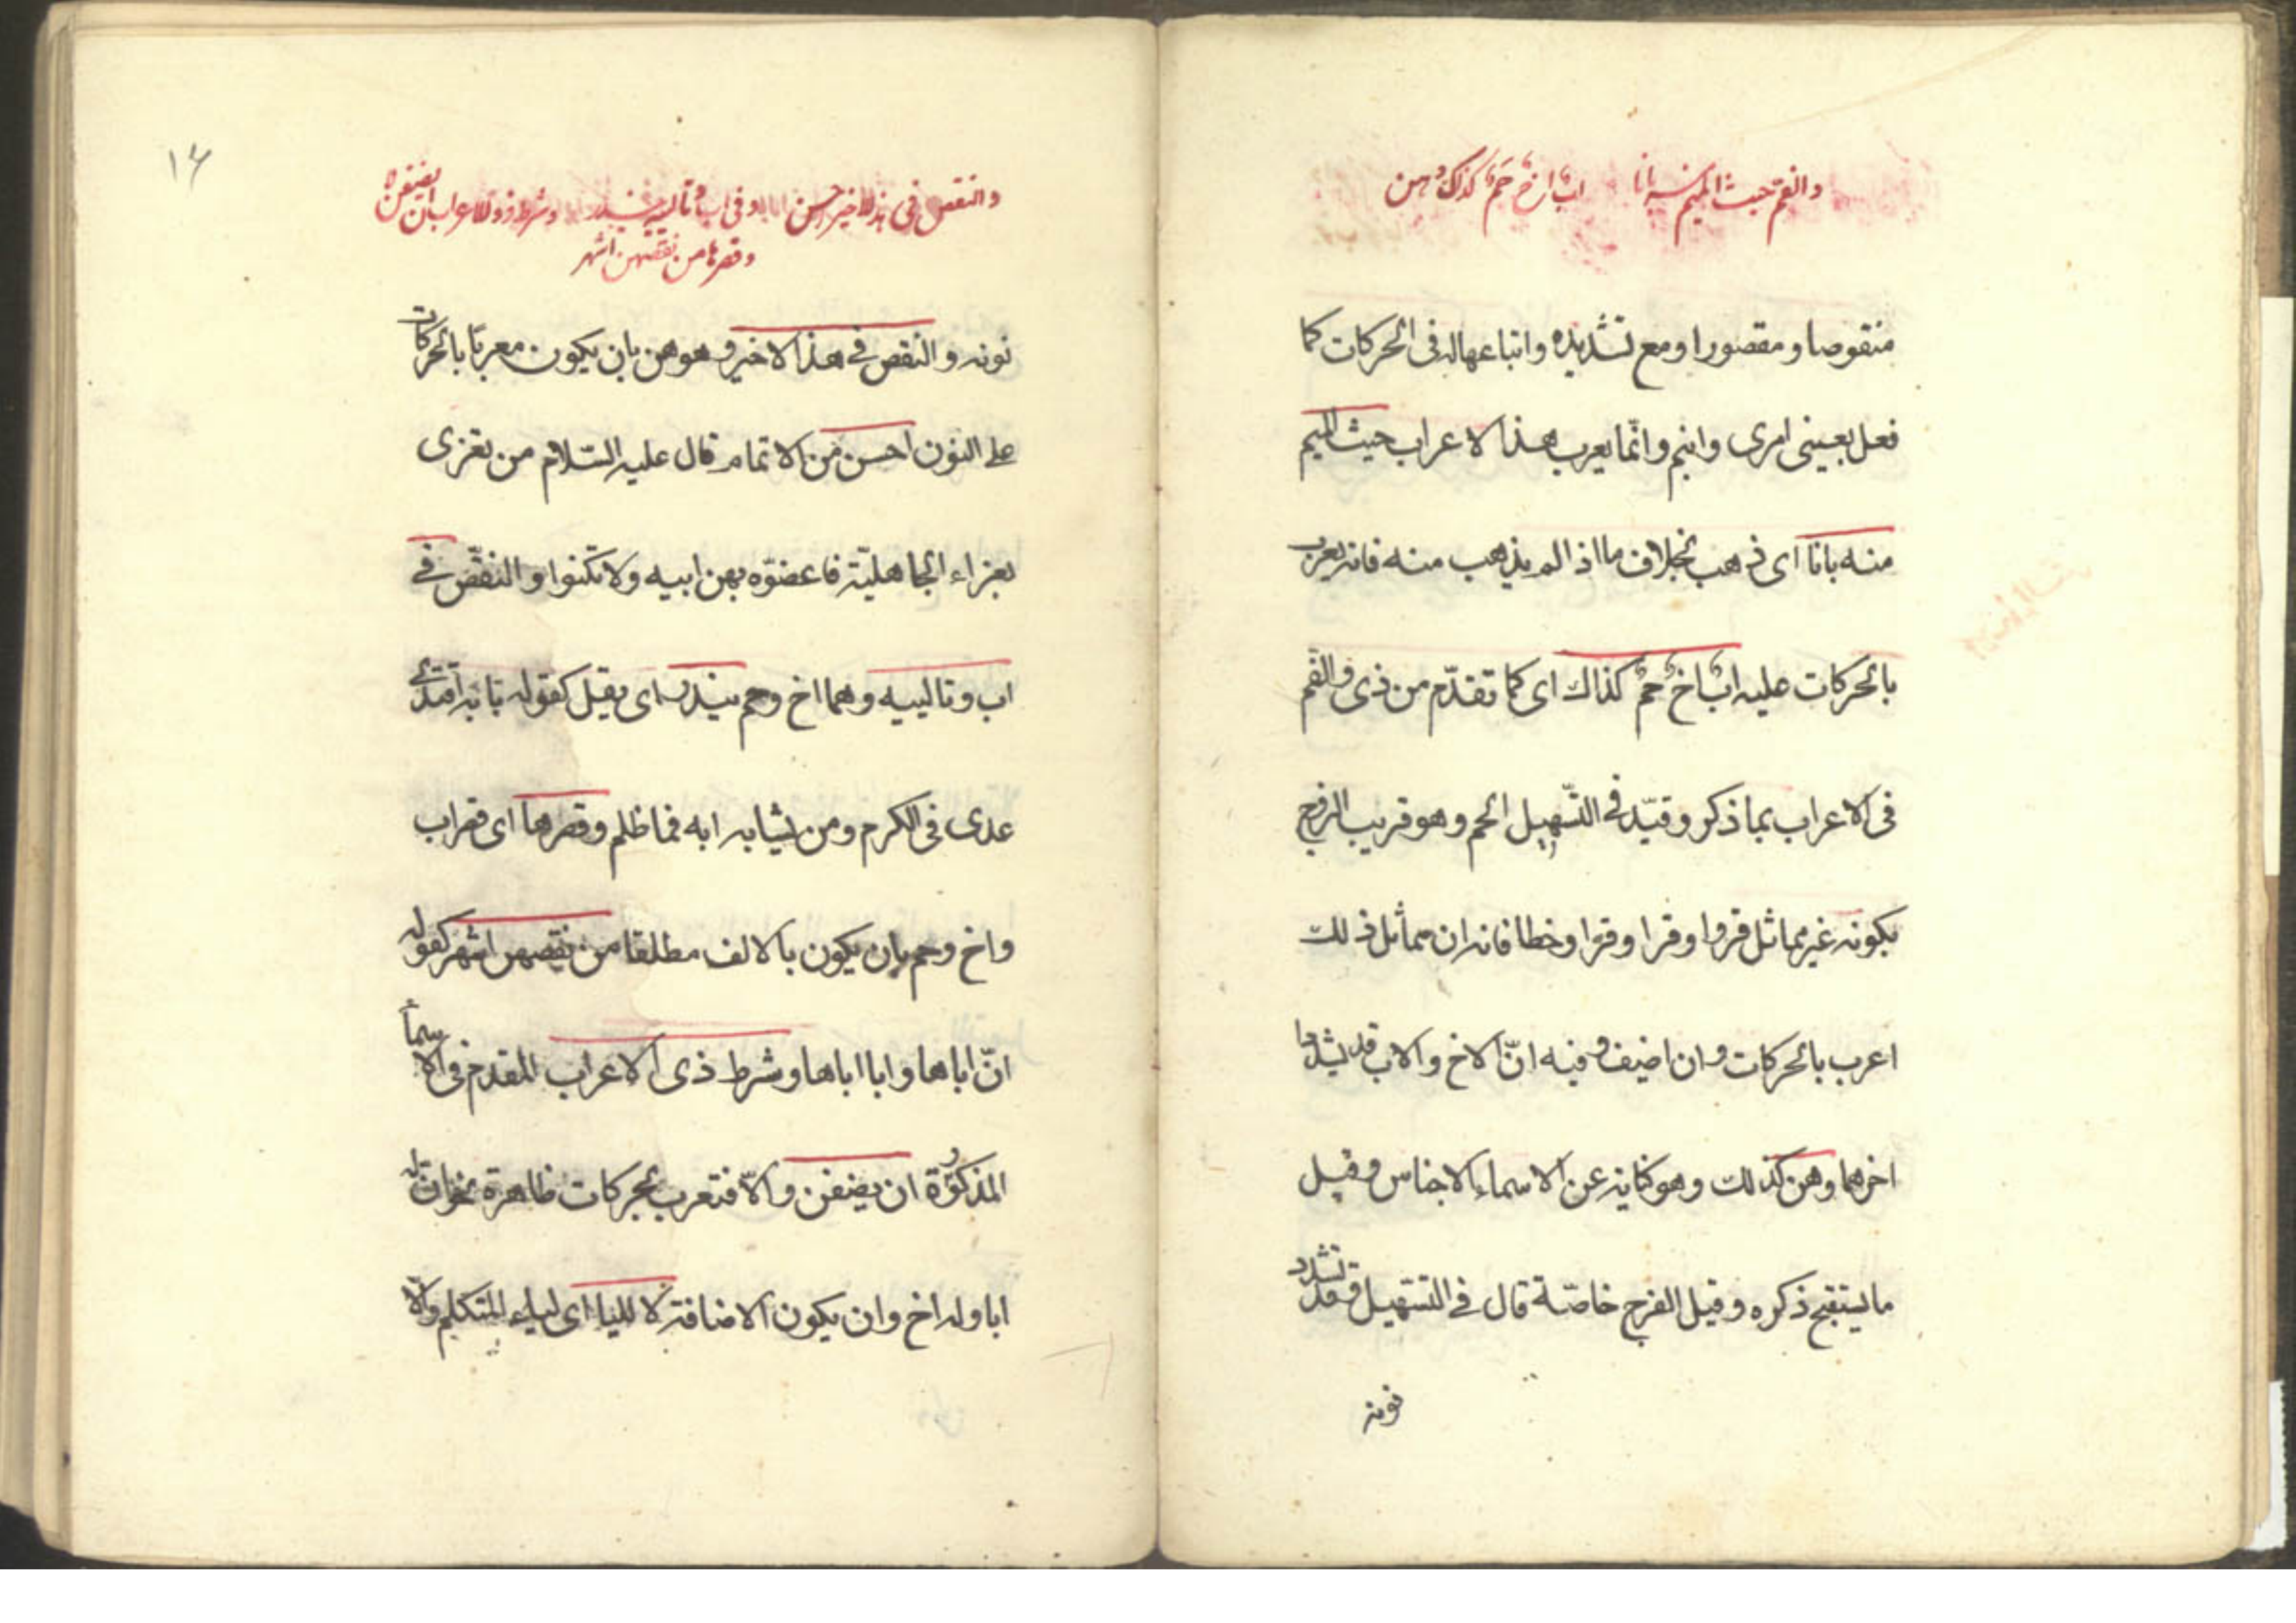 والفم حيث الميم منه بانا اب اخ حم كذاك وهن
منقوصا ومقصورا ومع تشديده واتباعها له في الحركات كما
فعل بعيني امرئ وابنم وانّما يعرب هذا الاعراب حيث الميم
منه بانا اى ذهب بخلاف ما اذا لم يذهب منه فانه يعرب
بالحركات عليه ابٌ اخٌ حمٌ كذاك اى كما تقدّم من ذى والفم
فى الاعراب بما ذكر وقيّد فى التّسهيل الحم وهو قريب الزوج
بكونه غير مماثل قروا وقرا وقروا وخطا فانه ان مماثل ذلك
اعرب بالحركات وان اضيف وفيه انّ الاخ والاب قد يشدد
اخرهما وهن كذلك وهو كناية عن الاسماء الاجناس وقيل
ما يستقبح ذكره وقيل الفرج خاصّة قال فى التسهيل وقد تشدد
نونه
١٦
والنقص فى هذا الاخير احسن وفى اب وتاليه يندر وشرط ذو الاعراب ان يضفن لا
وقصرها من نقصهن اشهر
نونه والنقص فى هذا الاخير وهو هن بان يكون معربًا بالحركات
على النون احسن من الاتمام قال عليه السّلام من تعزى
بعزاء الجاهليّة فاعضوّه بهن ابيه ولا تكنوا والنقص فى
اب وتالييه وهما اخ وحم يندر اى يقل كقوله بابه اقتدى
عدى فى الكرم ومن يشابه ابه فما ظلم وقصرها اى قصر اب
واخ وحم بان يكون بالالف مطلقا من نقصهن اشهر كقوله
انّ اباها وابا اباها وشرط ذى الاعراب المقدم فى الاسماء
المذكورة ان يضفن والّا فتعرب بحركات ظاهرة نحو ان له
ابا وله اخ وان يكون الاضافة لا لليا اى لياء المتكلم والّا